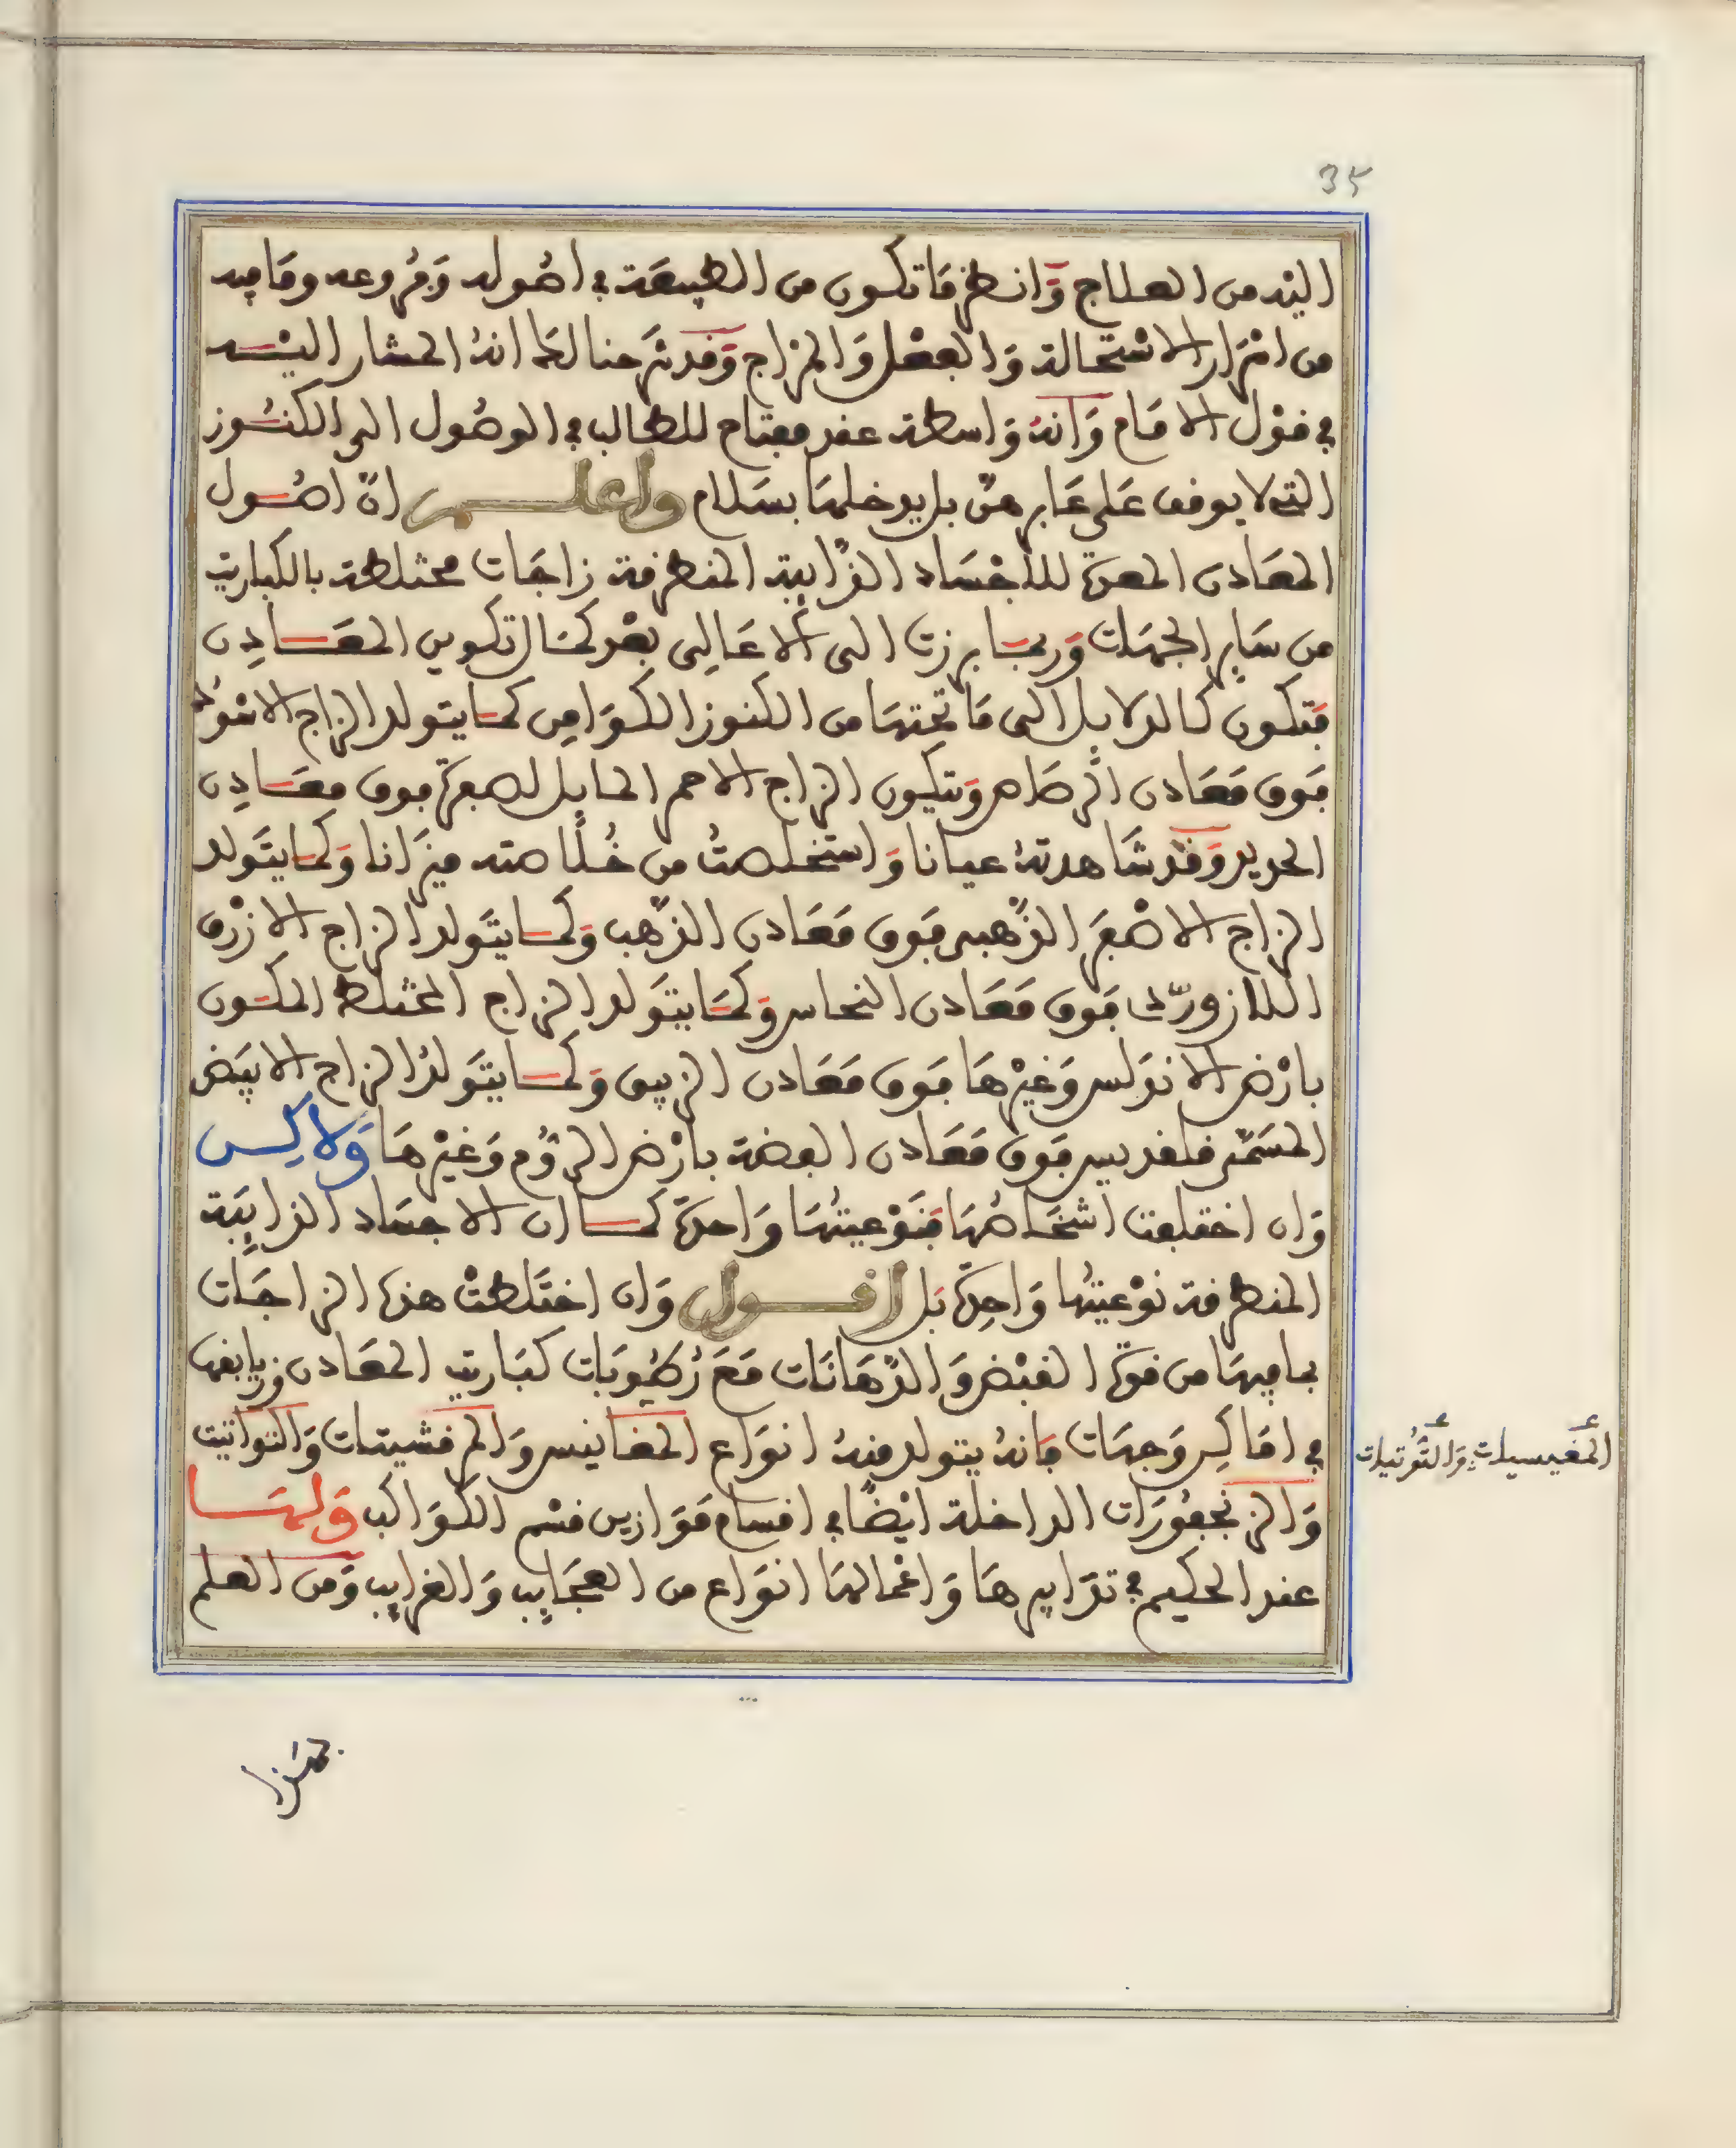 35
اليه من العلاج وَانظر مَا تكون من الطبيعَة في اصُوله وَفروعه ومَا فيه
من اسْرار الاسْتحالة وَالفعْل وَالمزاج وَقد شرَحنا لك انهُ المشار اليْـــه
في قوْل الامَام وَانهُ وَاسطة عقد مفتاح للطالب في الوصُول الى الكنُــوز
التي لا يوقف عَلى عَابر هنّ بل يدخلهَا بسَلام واعلـــم انّ اصُــول
المعَادن الممدة للأجْسَاد الذّايبة المنطرقة زاجَات مختلطة بالكباريت
من سَاير الجهَات وَربمَـا برزت الى الاعَالى بعْد كمَال تكوين المعَــادِن
فتكون كالدلايل الى مَا تحتهَا من الكنوز الكوَامِن كمـا يتولد الزاج الاسْوَد
فوق مَعَادن الرصَاص وَتتكون الزاج الاحمر المايل لصفرة فوق معَــادِن
الحديد وَقد شَاهدتهُ عيانا وَاستخلصتُ من خُلاصته ميزانا وَكمـا يتَولد
الزاج الاصْفَر الذّهبي فوق مَعَادن الذّهب وَكمــا يتَولد الزاج الازْرق
اللازوردّي فوق مَعَادن النحاس وَكمَـا يتوَلد الزاج المختلط المكــون
بارْض الاندَلس وَغيْرهَا فوق مَعَادن الزيبق وَكمــا يتَولدُ الزاج الابيَض
المسَمّى قلقديس فوق مَعَادن الفضة بارْض الرّوُم وَغيْرهَا وَلاكِــن
وَان اختلفت اشخَاصُهَا فنَوْعيتُهَا وَاحدة كمــا ان الاجسَاد الذايبَة
المنطرقة نوْعيتُها وَاحِدة بَل اقـــول وَان اختَلطتْ هذه الزاجَــات
بما فيهَا من قوة القبْض وَالدّهَانَات مَعَ رُطوبَات كبَاريت المعَادن وزيابقها
في امَاكِن وَجهَات فانهُ يتولد منهُ انوَاع المغانيس وَالمرقشيتات وَالتواتيت
وَالزنجفورَات الداخلة ايْضًا في اقسام مَوَازين قسْم الكوَاكب وَلهَـــا
عند الحكيم في تدَابيرهَا وَاعْمالهَا انوَاع من العجَايب وَالغرايب وَمن العلم
المغنيسيات وَالتوُتيات